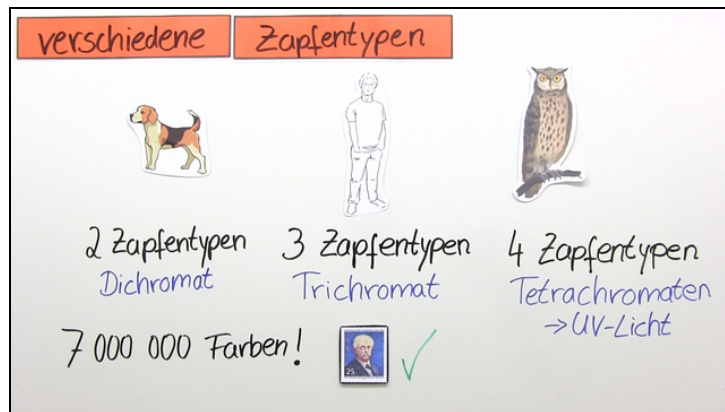 verschiedene Zapfentypen
2 Zapfentypen
Dichromat
3 Zapfentypen
Trichromat
4 Zapfentypen
Tetrachromaten
→ UV-Licht
7 000 000 Farben!
25